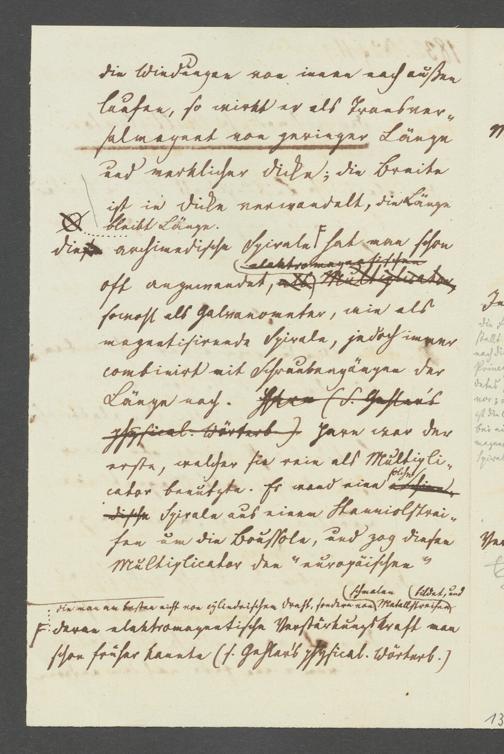 die Windungen von innen nach außen
laufen, so wirkt er als Transver-
salmagnet von geringer Länge
und merklicher Dicke; die Breite
ist in Dicke verwandelt, die Länge
bleibt Länge.
Die archimedische Spirale hat man schon
elektromagnetischen
oft angewendet, als Multiplicator,
sowohl als Galvanometer, wie als
magnetisirende Spirale, jedoch immer
combinirt mit Schraubengängen der
Länge nach. (s. Gehler's
physical. Wörterb.) war der
erste, welcher sie rein als Multipli-
cator benutzte. Er wand eine
solche
Spirale aus einem Stanniolstrei-
fen um die Boussole, und zog diesen
Multiplicator den "europäischen"
schmalen bildet, und
die man am besten nicht von cylindrischem Draht, sondern von Metallstreifen
deren elektromagnetische Verstärkungskraft man
schon früher kannte (s. Gehler's physical. Wörterb.)
13